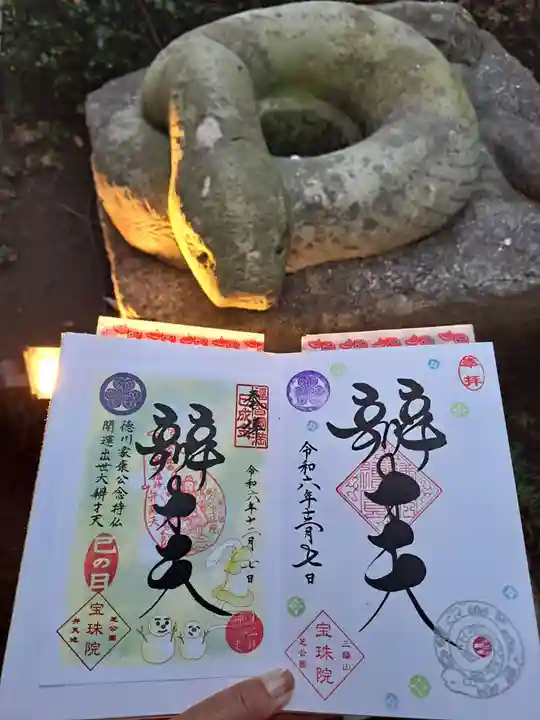 奉拝
辨才天
令和六年十二月七日
三縁山
宝珠院
芝公園
奉拝
辨才天
徳川家康公念持仏
開運出世大辨才天
巳の日
令和六年十二月七日
芝公園
宝珠院
弁天池